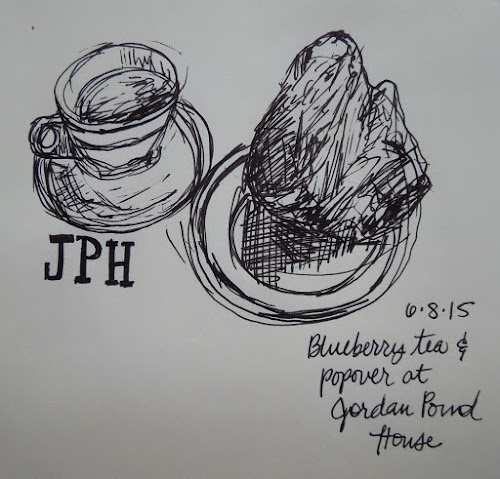 JPH
6.8.15
Blueberry tea &
popover at
Jordan Pond
House